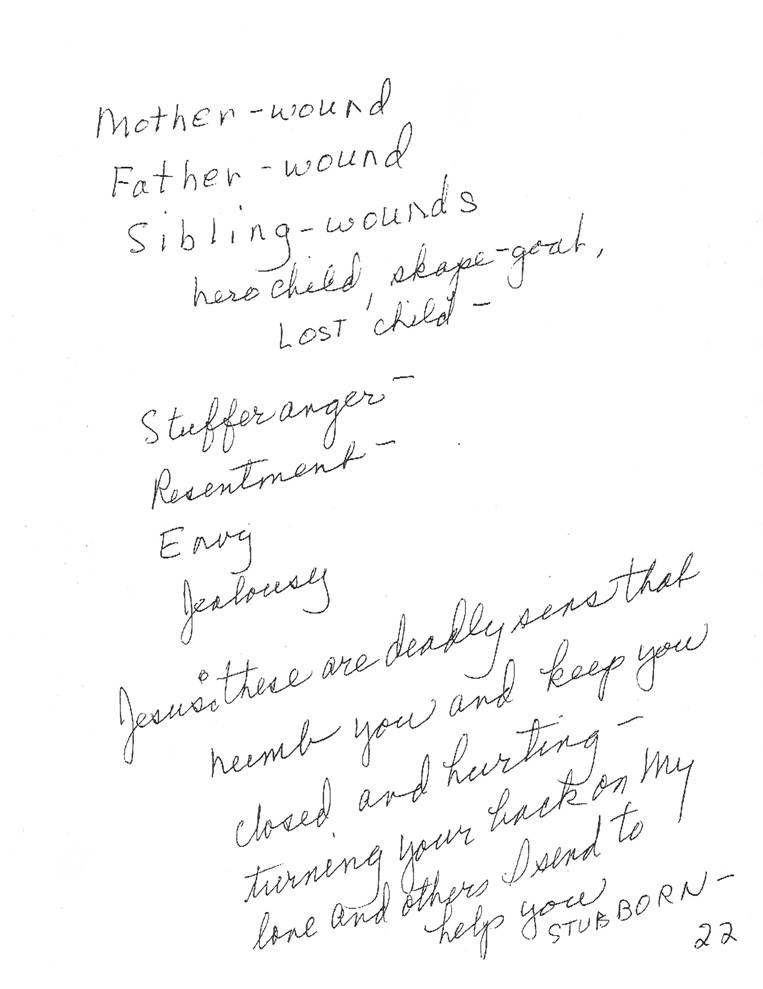 Mother-wound
Father-wound
Sibling-wounds
hero child, skape-goat,
LOST child -
Stuffer anger -
Resentment -
Envy
Jealousy
Jesus: these are deadly sens that
numb you and keep you
closed and hurting -
turning your back on My
love and others I send to
help you
STUBBORN -
22